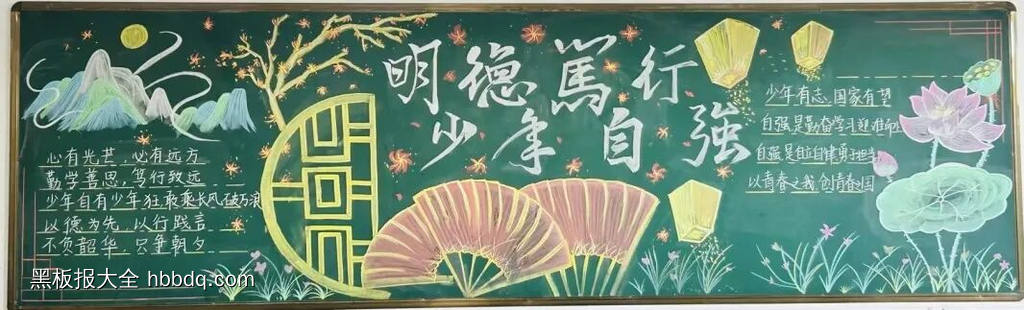 明德篤行
少年自強
心有光芒,必有远方
勤学善思,笃行致远
少年自有少年狂敢乘长风破万浪
以德为先,以行践言
不负韶华,只争朝夕
少年有志,国家有望
自强是勤奋学习迎难而
自强是自信自律勇于担当
以青春之我创青春国
黑板报大全 hbbdq.com